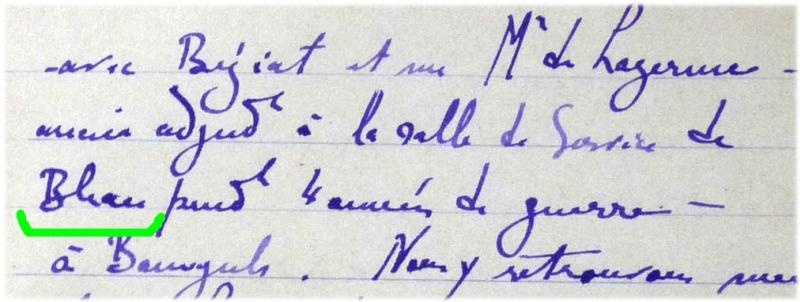 - avec Béjiat et un Mr de Lazerme -
ancien adjudt à la salle de Service de
pendt 4 années de guerre -
à Banyuls. Nous y retrouvons